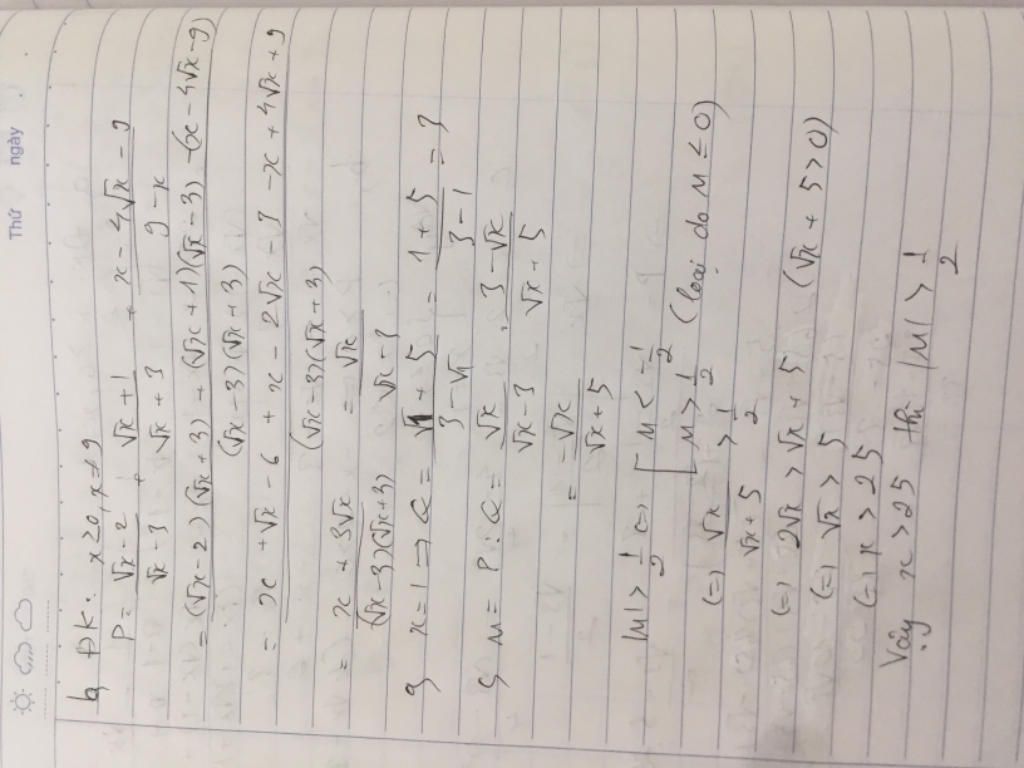 Thứ ngày
b, ĐK: x ≥ 0, x ≠ 9
P = (√x - 2)/(√x - 3) + (√x + 1)/(√x + 3) + (x - 4√x - 9)/(9 - x)
= ((√x - 2)(√x + 3) + (√x + 1)(√x - 3) - (x - 4√x - 9))/((√x - 3)(√x + 3))
= (x + √x - 6 + x - 2√x - 3 - x + 4√x + 9)/((√x - 3)(√x + 3))
= (x + 3√x)/((√x - 3)(√x + 3)) = √x/(√x - 3)
x = 1 => Q = (√1 + 5)/(3 - √1) = (1 + 5)/(3 - 1) = 3
M = P.Q = √x/(√x - 3) . (3 - √x)/(√x + 5)
= -√x/(√x + 5)
|M| > 1/2 (=) [ M < -1/2
M > 1/2 (loại do M ≤ 0)
(=) √x/(√x + 5) > 1/2
(=) 2√x > √x + 5 (√x + 5 > 0)
(=) √x > 5
(=) x > 25
Vậy x > 25 thì |M| > 1/2